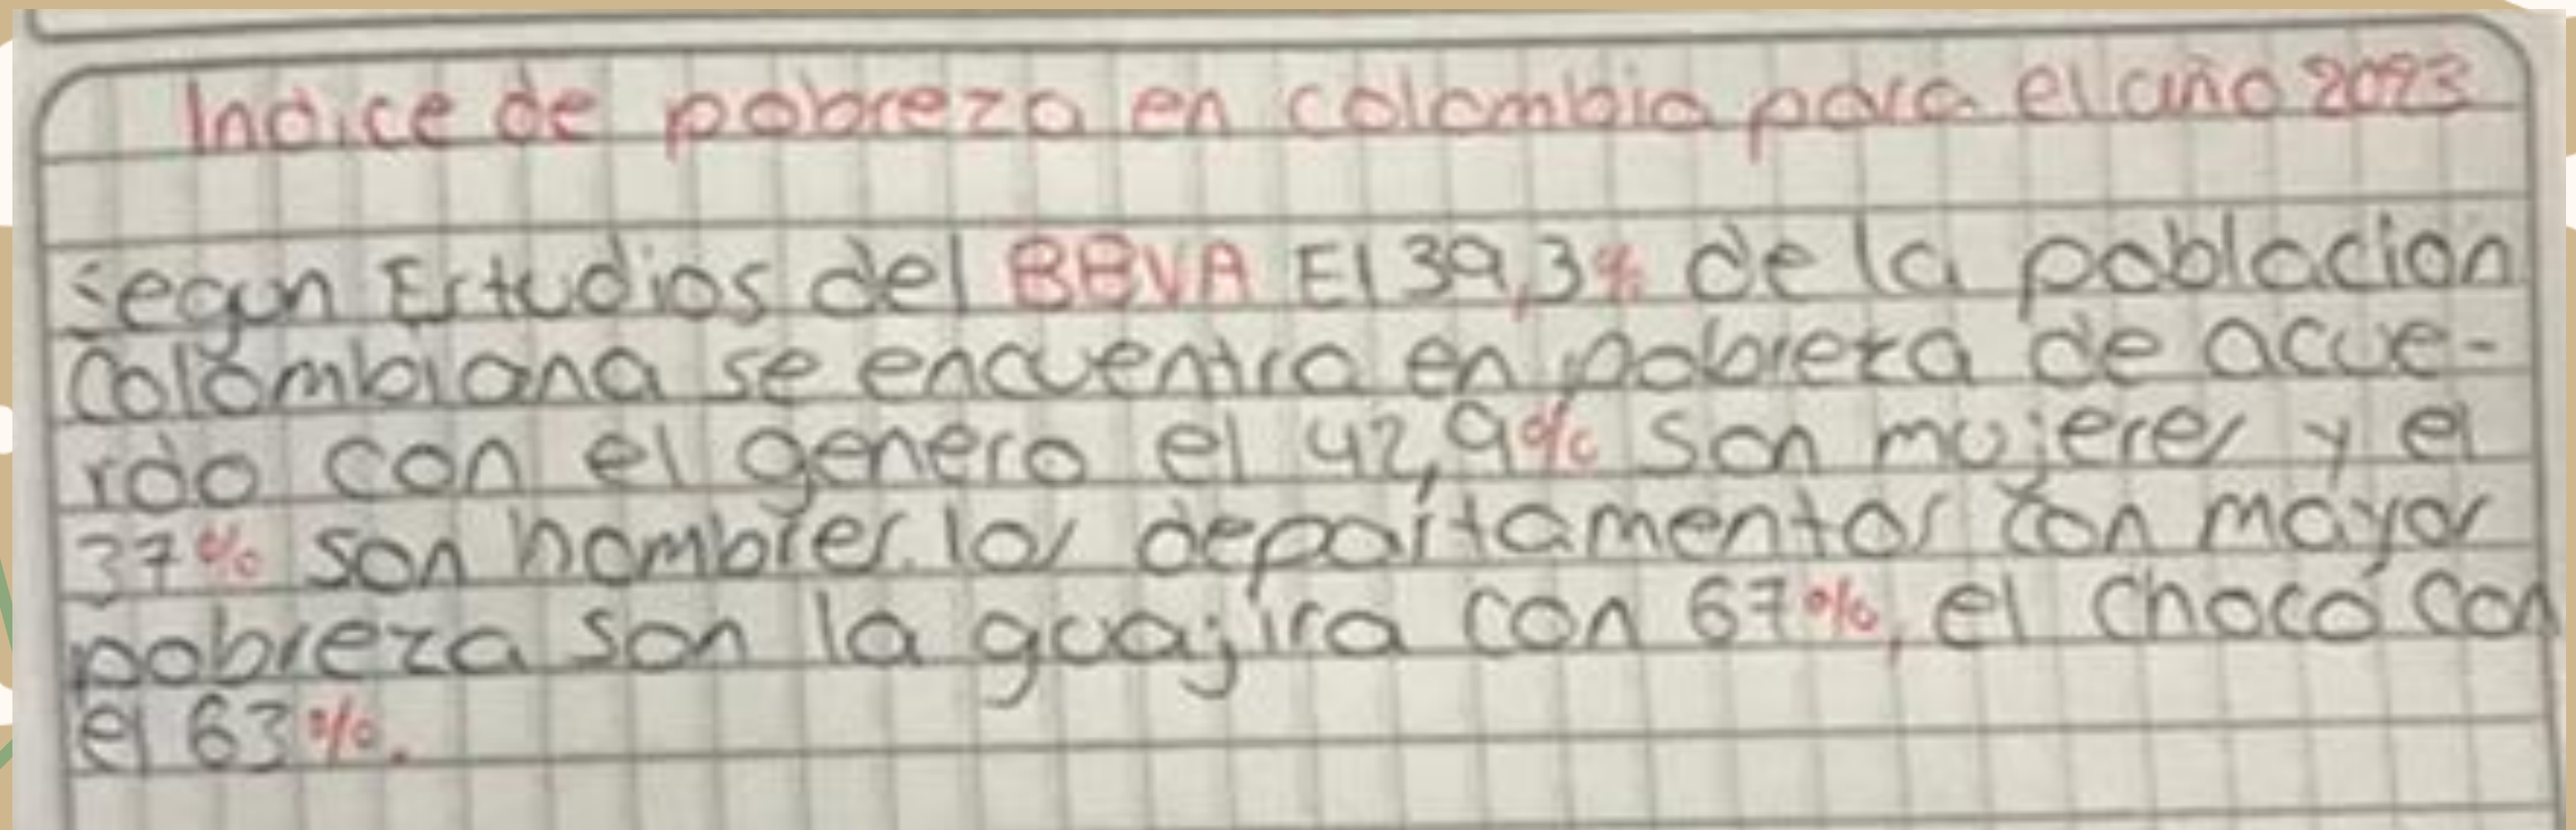 Indice de pobreza en colombia para el año 2023
segun Estudios del BBVA El 39,3% de la poblacion
Colombiana se encuentra en pobreza de acue-
rdo con el genero el 42,9% son mujeres y el
37% son hombres. los departamentos con mayor
pobreza son la guajira con 67%, el chocó con
el 63%.